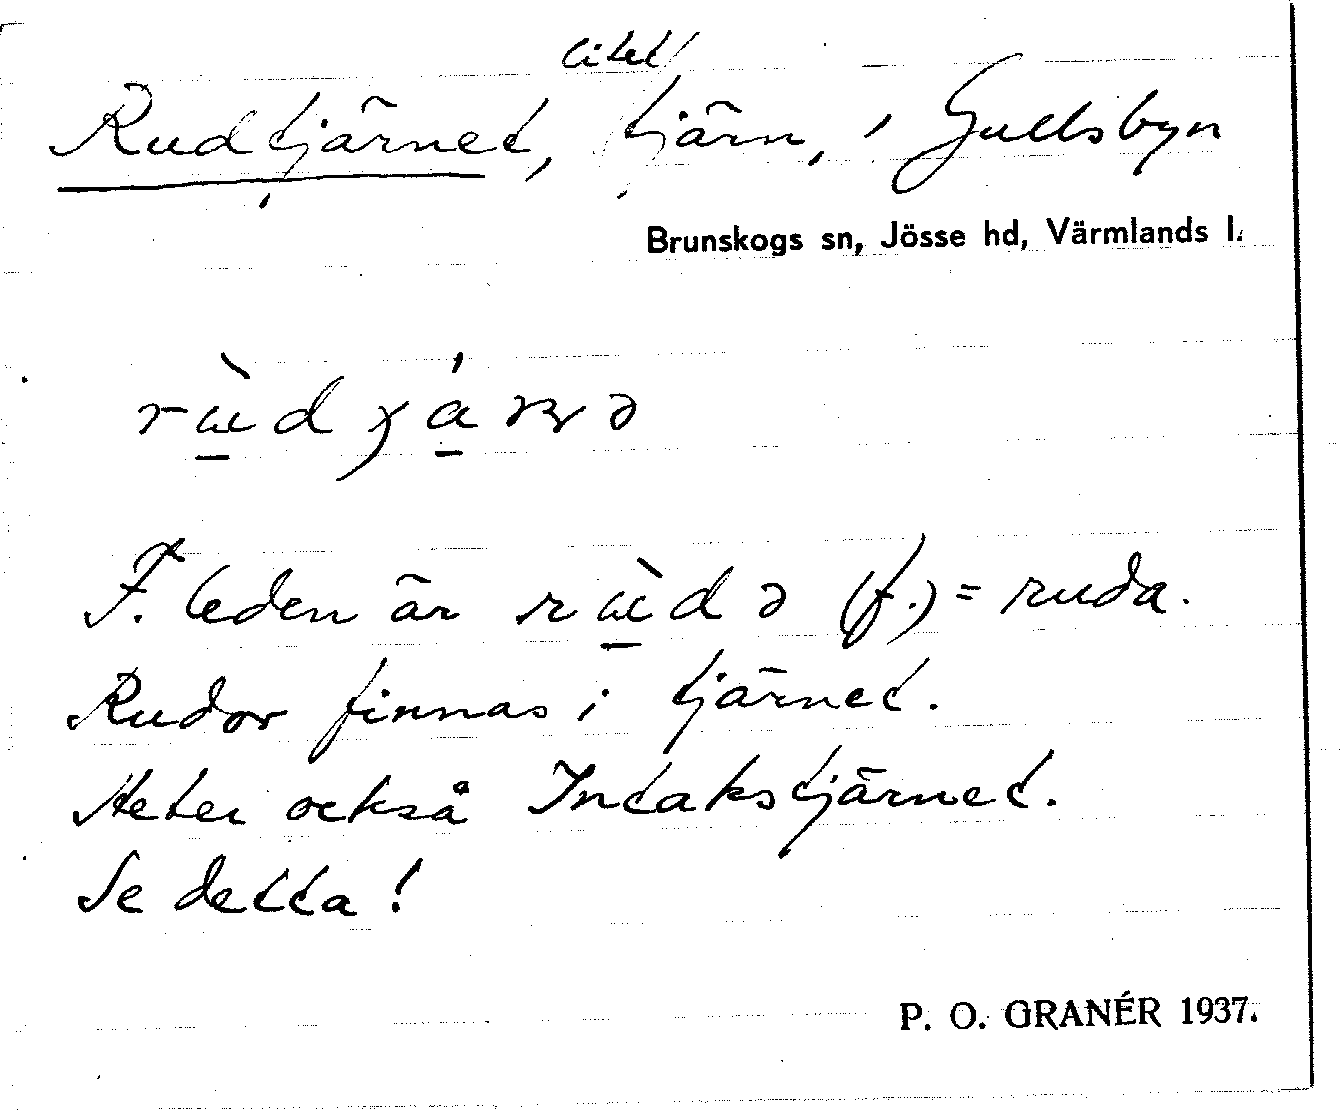 litet
Rudtjärnet, tjärn, i Gullsbyn
Brunskogs sn, Jösse hd, Värmlands l.
F. leden är (f.) = ruda.
Rudor finnas i tjärnet.
Heter också Intakstjärnet.
Se detta!
P. O. GRANÉR 1937.